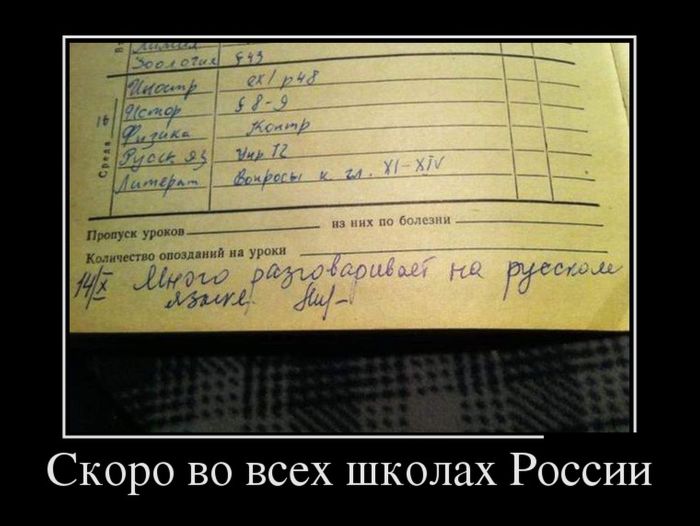 Зоология § 43
Иностр ex 1 p 48
Истор § 8-9
16
Физика Контр
Среда
Русск яз Упр 12
Литерат Вопросы к гл. XI-XIV
Пропуск уроков из них по болезни
Количество опозданий на уроки
14/X Много разговаривает на русском
языке
Скоро во всех школах России